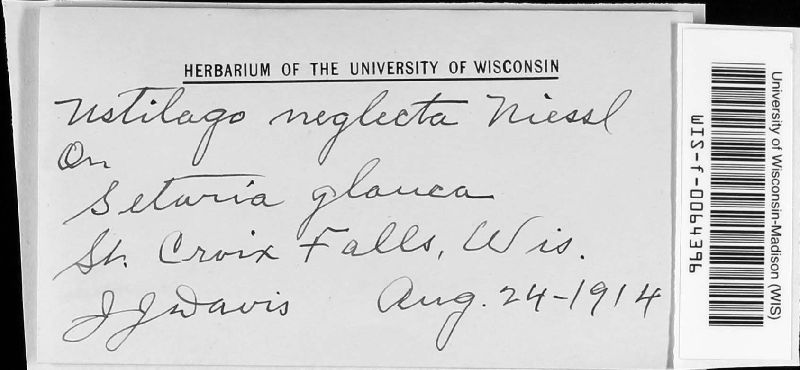 HERBARIUM OF THE UNIVERSITY OF WISCONSIN
Ustilago neglecta Niessl
On
Setaria glauca
St. Croix Falls, Wis.
J J Davis Aug. 24-1914
University of Wisconsin-Madison (WIS)
WIS-f-0064396